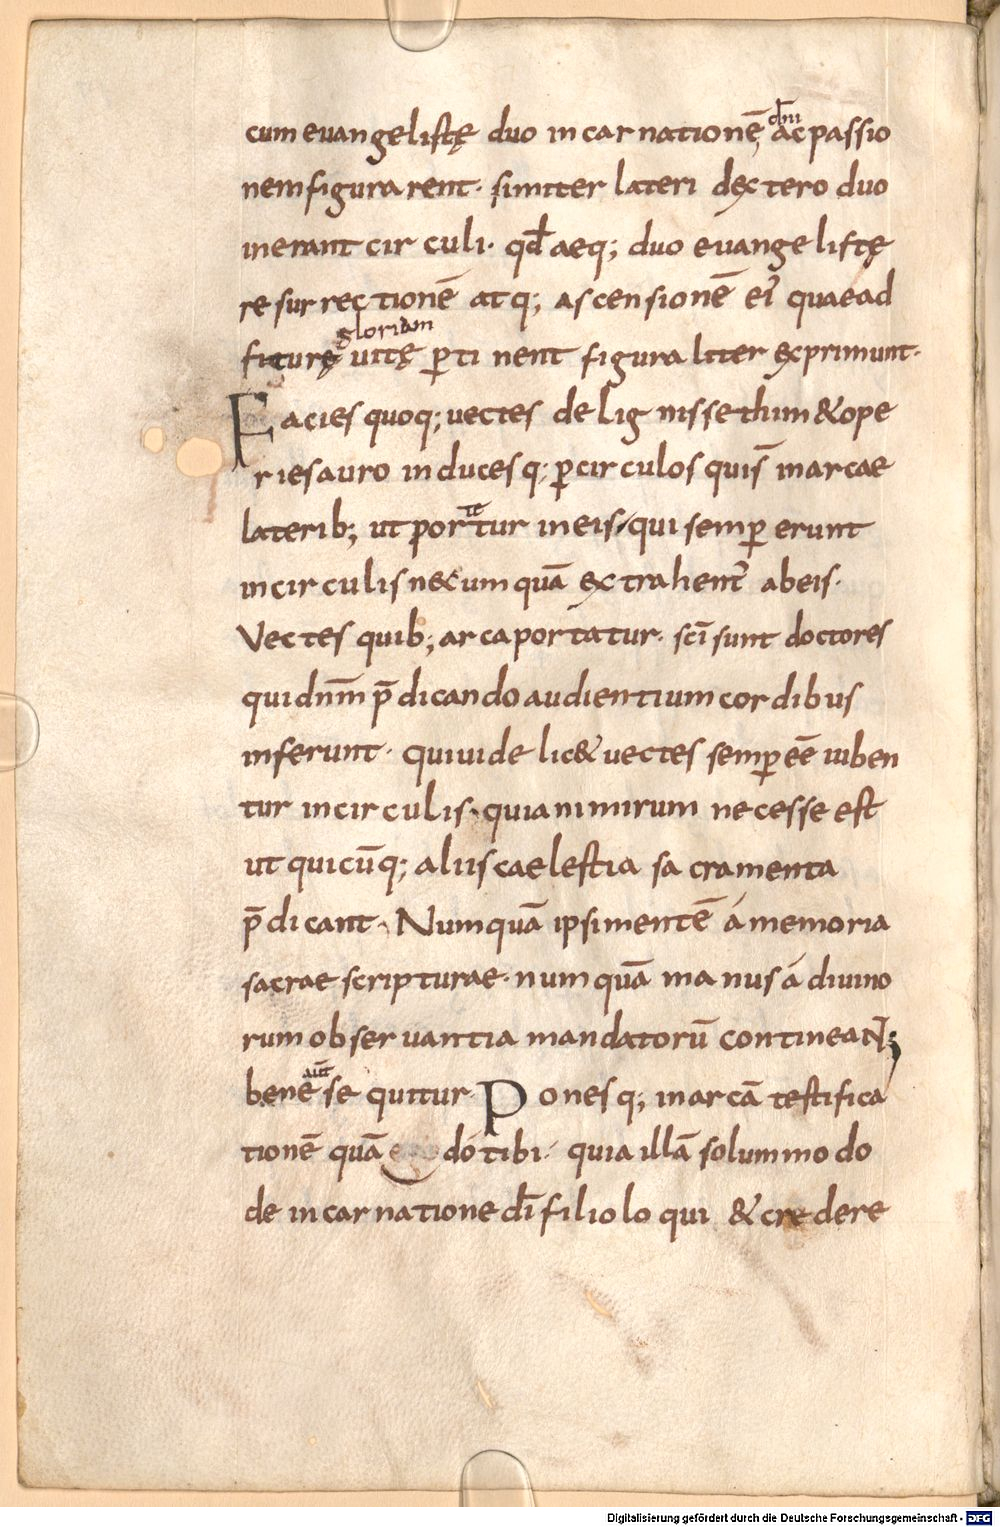 cum euangelistę duo incarnationē, dn̄i ac passio
nem figurarent. similiter lateri dextero duo
inerant circuli. qđ aeq; duo euangelistę
resurrectionē atq; ascensionē ei' quae ad
futurę gloriam uitę ꝑtinent figuraliter exprimunt.
Facies quoq; uectes de lignis sethim & ope
ries auro inducesq; ꝑ circulos qui s̄ in arcae
laterib; ut portentur in eis qui semꝑ erunt
in circulis nec umquā extrahent᷑ ab eis.
Vectes quib; arca portatur. sc̄i sunt doctores
qui dnm̄ p̄dicando audientium cordibus
inferunt. qui uidelic& uectes semꝑ eē iuben
tur in circulis. quia nimirum necesse est
ut quicūq; aliis caelestia sacramenta
p̄dicant. Numquā ipsi mentē á memoria
sacrae scripturae. numquā manus á diuino
rum obseruantia mandatorū contineaN̄;
bene aūt sequitur. Ponesq; in arcā testifica
tionē quā dó tibi. quia illā solummodo
de incarnatione dī filio loqui & credere
Digitalisierung gefördert durch die Deutsche Forschungsgemeinschaft - DFG